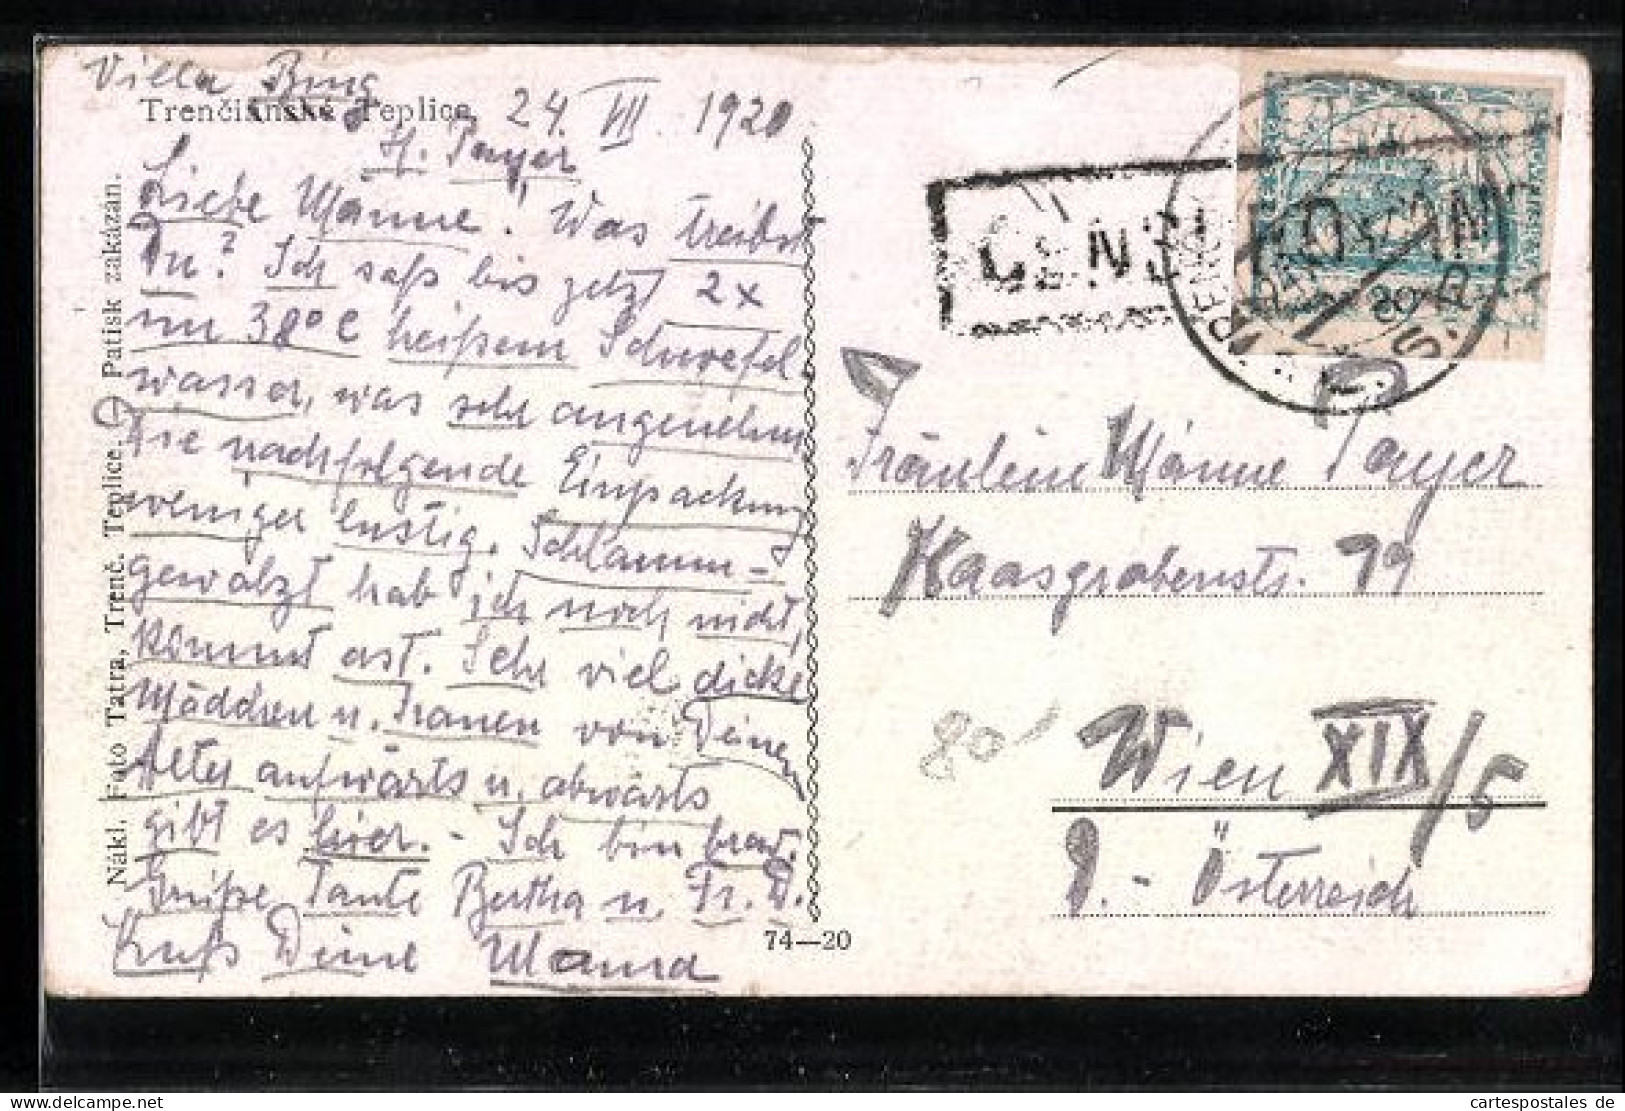 Villa Bing
Trenčianské Teplice, 24. VII. 1920
H. Payer
Liebe Manne! Was treibst
Du? Ich saß bis jetzt 2x
im 38° C heißem Schwefel
wasser, was sehr angenehm
Die nachfolgende Einpackung
weniger lustig. Schlamm-
gewälzt hab ich noch nicht,
kommt erst. Sehr viel dicke
Mädchen u. Frauen von Deinem
Alter aufwärts u. abwärts
gibt es hier. - Ich bin brav.
Grüße Tante Bertha u. Fr. D.
Kuß Deine Mama
Nákl. Foto Tatra, Trenč. Teplice. Patisk zakázán.
74—20
POŠTA
20
Č. S. R.
Fräulein Manne Payer
Kaasgrabenstr. 19
Wien XIX/5
D.-Österreich
80
cartespostales de